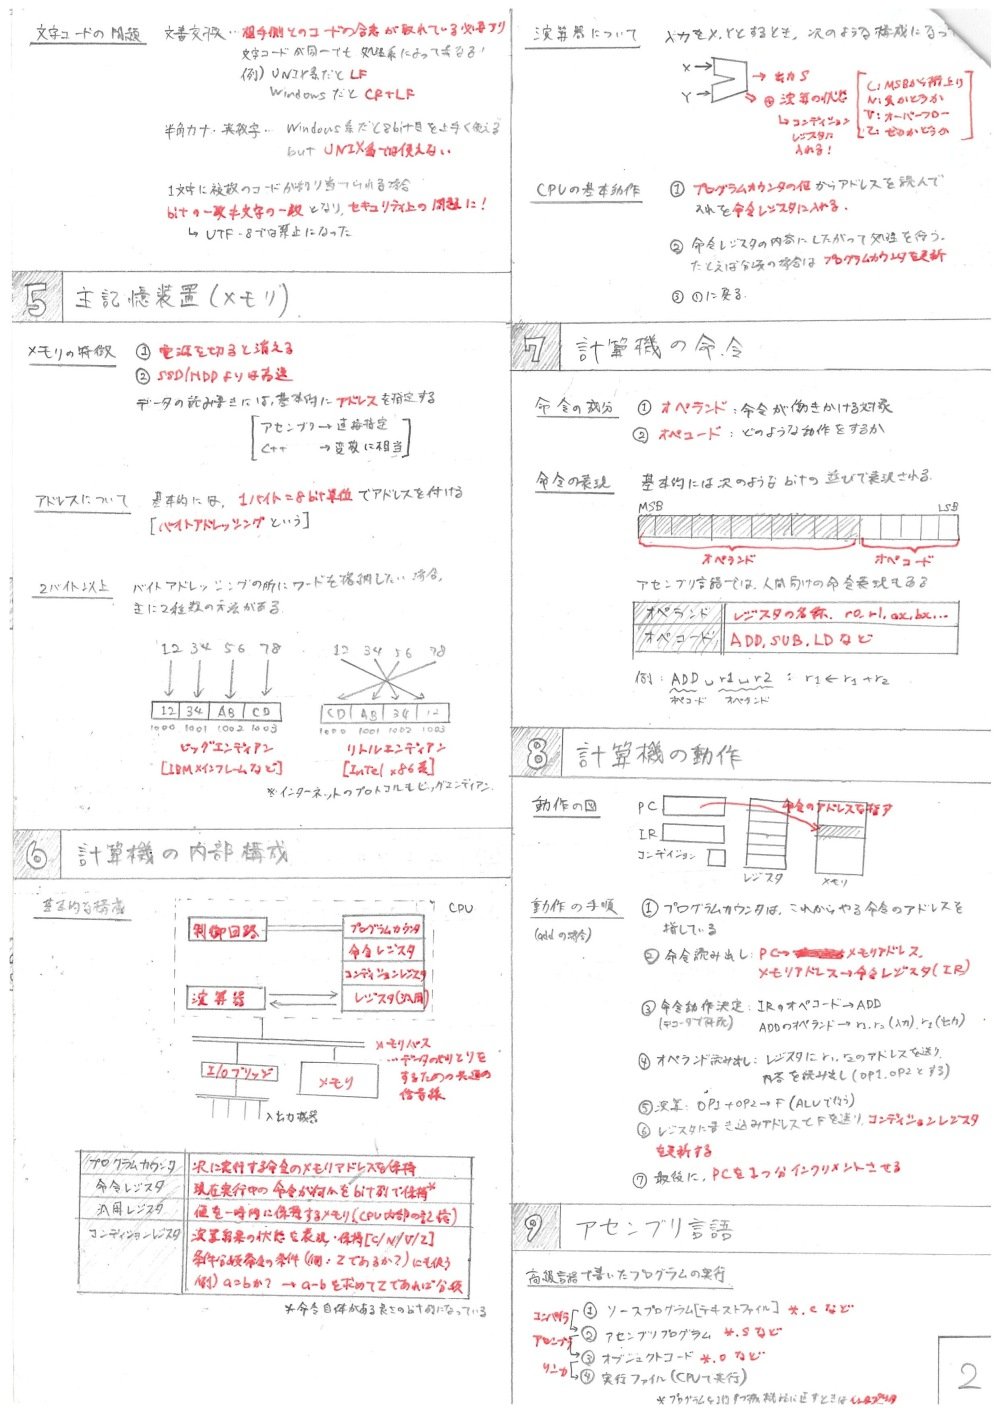 文字コードの問題
文書交換…相手側とのコードの合意が取れている必要アリ
文字コードが同一でも処理系によって異なる！
例）UNIX系だとLF
Windowsだと CR+LF
半角カナ・英数字… Windows系だと8bit目を上手く使える
but UNIX系では使えない
1文字に複数のコードが割り当てられる場合
bitの一致≠文字の一致となり、セキュリティ上の問題に！
↳ UTF-8では禁止になった
5 主記憶装置(メモリ)
メモリの特徴
① 電源を切ると消える
② SSD/HDDよりは高速
データの読み書きには、基本的にアドレスを指定する
アセンブリ→直接指定
C++ →変数に相当
アドレスについて
基本的には、1バイト=8bit単位でアドレスを付ける
[バイトアドレッシングという]
2バイト以上
バイトアドレッシングの所にワードを格納したい場合、
主に2種類の方法がある.
12 34 56 78
12 34 AB CD
1000 1001 1002 1003
ビッグエンディアン
[IBMメインフレームなど]
12 34 56 78
CD AB 34 12
1000 1001 1002 1003
リトルエンディアン
[Intel x86系]
※インターネットのプロトコルもビッグエンディアン.
6 計算機の内部構成
基本的な構成
CPU
制御回路
プログラムカウンタ
命令レジスタ
コンディションレジスタ
レジスタ(汎用)
演算器
メモリバス
…データのやりとりを
するための共通の
信号線
I/Oブリッジ
メモリ
入出力機器
プログラムカウンタ 次に実行する命令のメモリアドレスを保持
命令レジスタ 現在実行中の命令が何かをbit列で保持*
汎用レジスタ 値を一時的に保持するメモリ(CPU内部の記憶)
コンディションレジスタ 演算結果の状態を表現・保持[C/N/V/Z]
条件分岐命令の条件(例：Zであるか？)にも使う
例) a=bか？ → a-bを求めてZであれば分岐
*命令自体がある長さのbit列になっている
演算器について
入力をX,Yとすると、次のような構成になって
X
Y
→ 出力S
⊕ 演算の状態
↳ コンディション
レジスタに
入れる！
C：MSBから桁上り
N：負かどうか
V：オーバーフロー
Z：ゼロかどうか
CPUの基本動作
① プログラムカウンタの値からアドレスを読んで
これを命令レジスタに入れる.
② 命令レジスタの内容にしたがって処理を行う.
たとえば分岐の場合はプログラムカウンタを更新
③ ①に戻る.
7 計算機の命令
命令の成分
① オペランド：命令が働きかける対象
② オペコード：どのような動作をするか
命令の表現
基本的には次のようなbitの並びで表現される.
MSB LSB
オペランド オペコード
アセンブリ言語では、人間向けの命令表現もある
オペランド レジスタの名称. r0, r1, ax, bx…
オペコード ADD, SUB, LDなど
例：ADD␣r1␣r2 : r1←r1+r2
オペコード オペランド
8 計算機の動作
動作の図
PC
IR
コンディション
レジスタ
命令のアドレスを指す
メモリ
動作の手順
(addの場合)
① プログラムカウンタは、これからやる命令のアドレスを
指している
② 命令読み出し：PC→メモリアドレス,
メモリアドレス→命令レジスタ(IR)
③ 命令動作決定：IRのオペコード→ADD
(デコーダで解釈) ADDのオペランド→r1,r2(入力), r1(出力)
④ オペランド読み出し：レジスタにr1,r2のアドレスを送り,
内容を読み出し(OP1,OP2とする)
⑤ 演算：OP1+OP2→F(ALUで行う)
⑥ レジスタに書き込みアドレスとFを送り,コンディションレジスタ
を更新する
⑦ 最後に, PCを1つ分インクリメントさせる
9 アセンブリ言語
高級言語で書いたプログラムの実行
コンパイラ
アセンブラ
リンカ
① ソースプログラム[テキストファイル] *.cなど
② アセンブリプログラム *.sなど
③ オブジェクトコード *.oなど
④ 実行ファイル(CPUで実行)
2